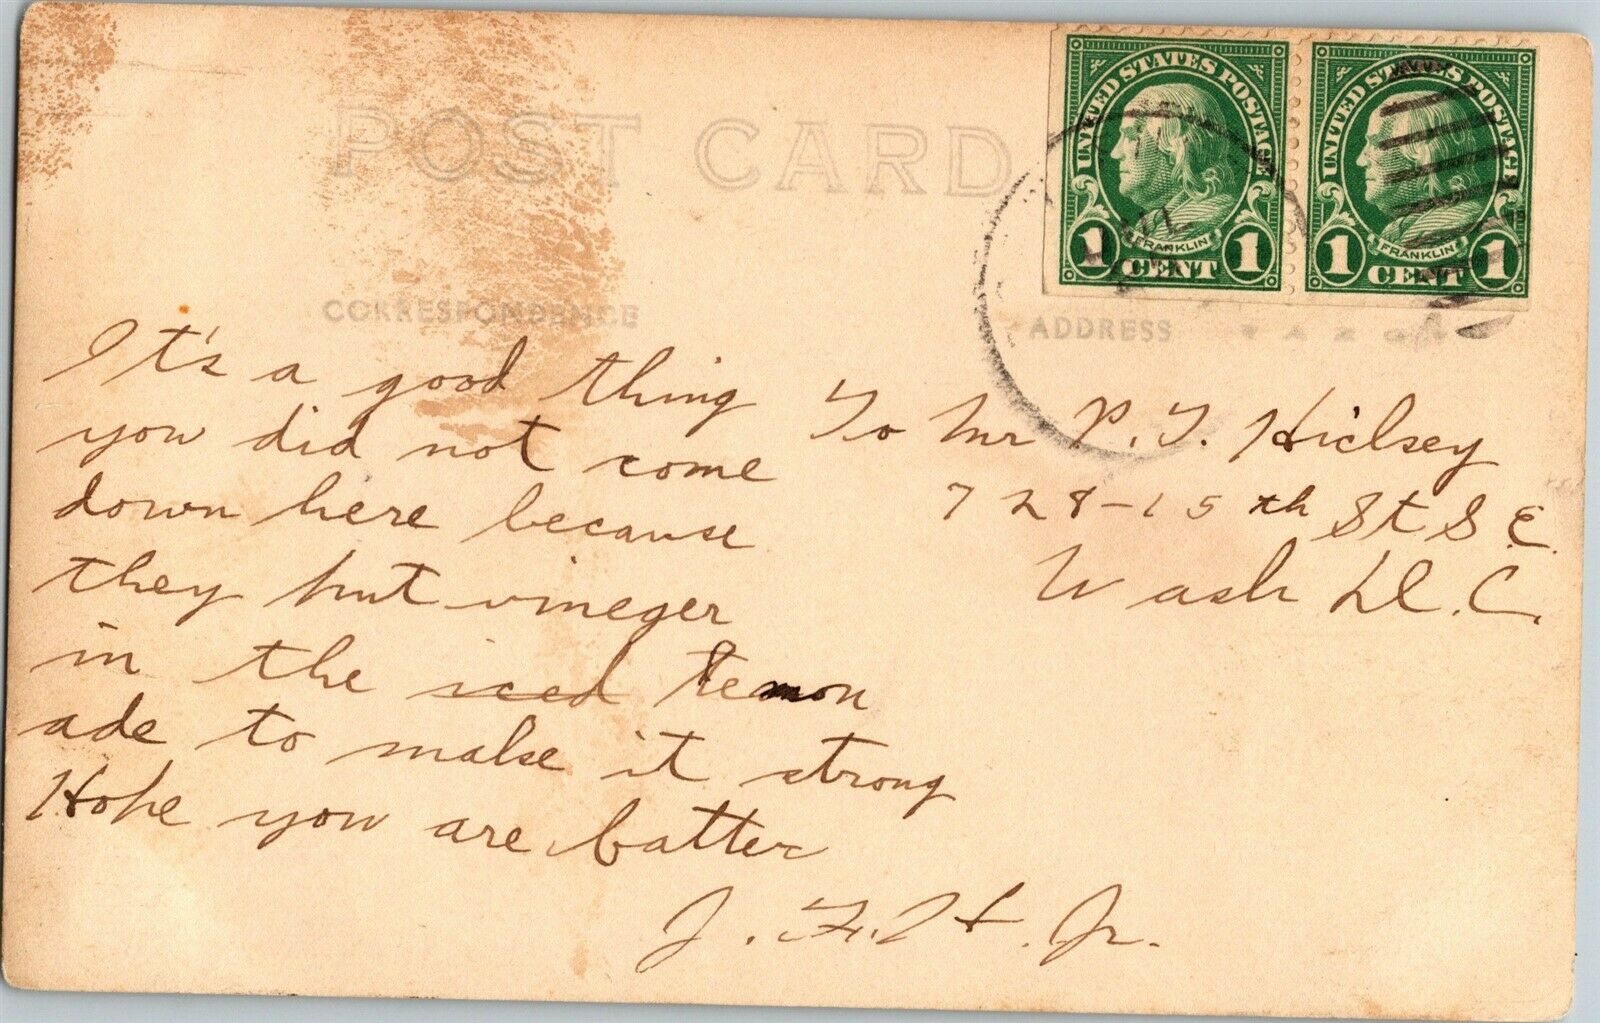 POST CARD
UNITED STATES POSTAGE
FRANKLIN
1 CENT 1
UNITED STATES POSTAGE
FRANKLIN
1 CENT 1
CORRESPONDENCE
ADDRESS
It's a good thing
you did not come
down here because
they put vineger
in the iced lemon
ade to make it strong
Hope you are batter
J. F. H. Jr.
To Mr P. T. Hicksey
728-15th St S.E.
Wash D.C.